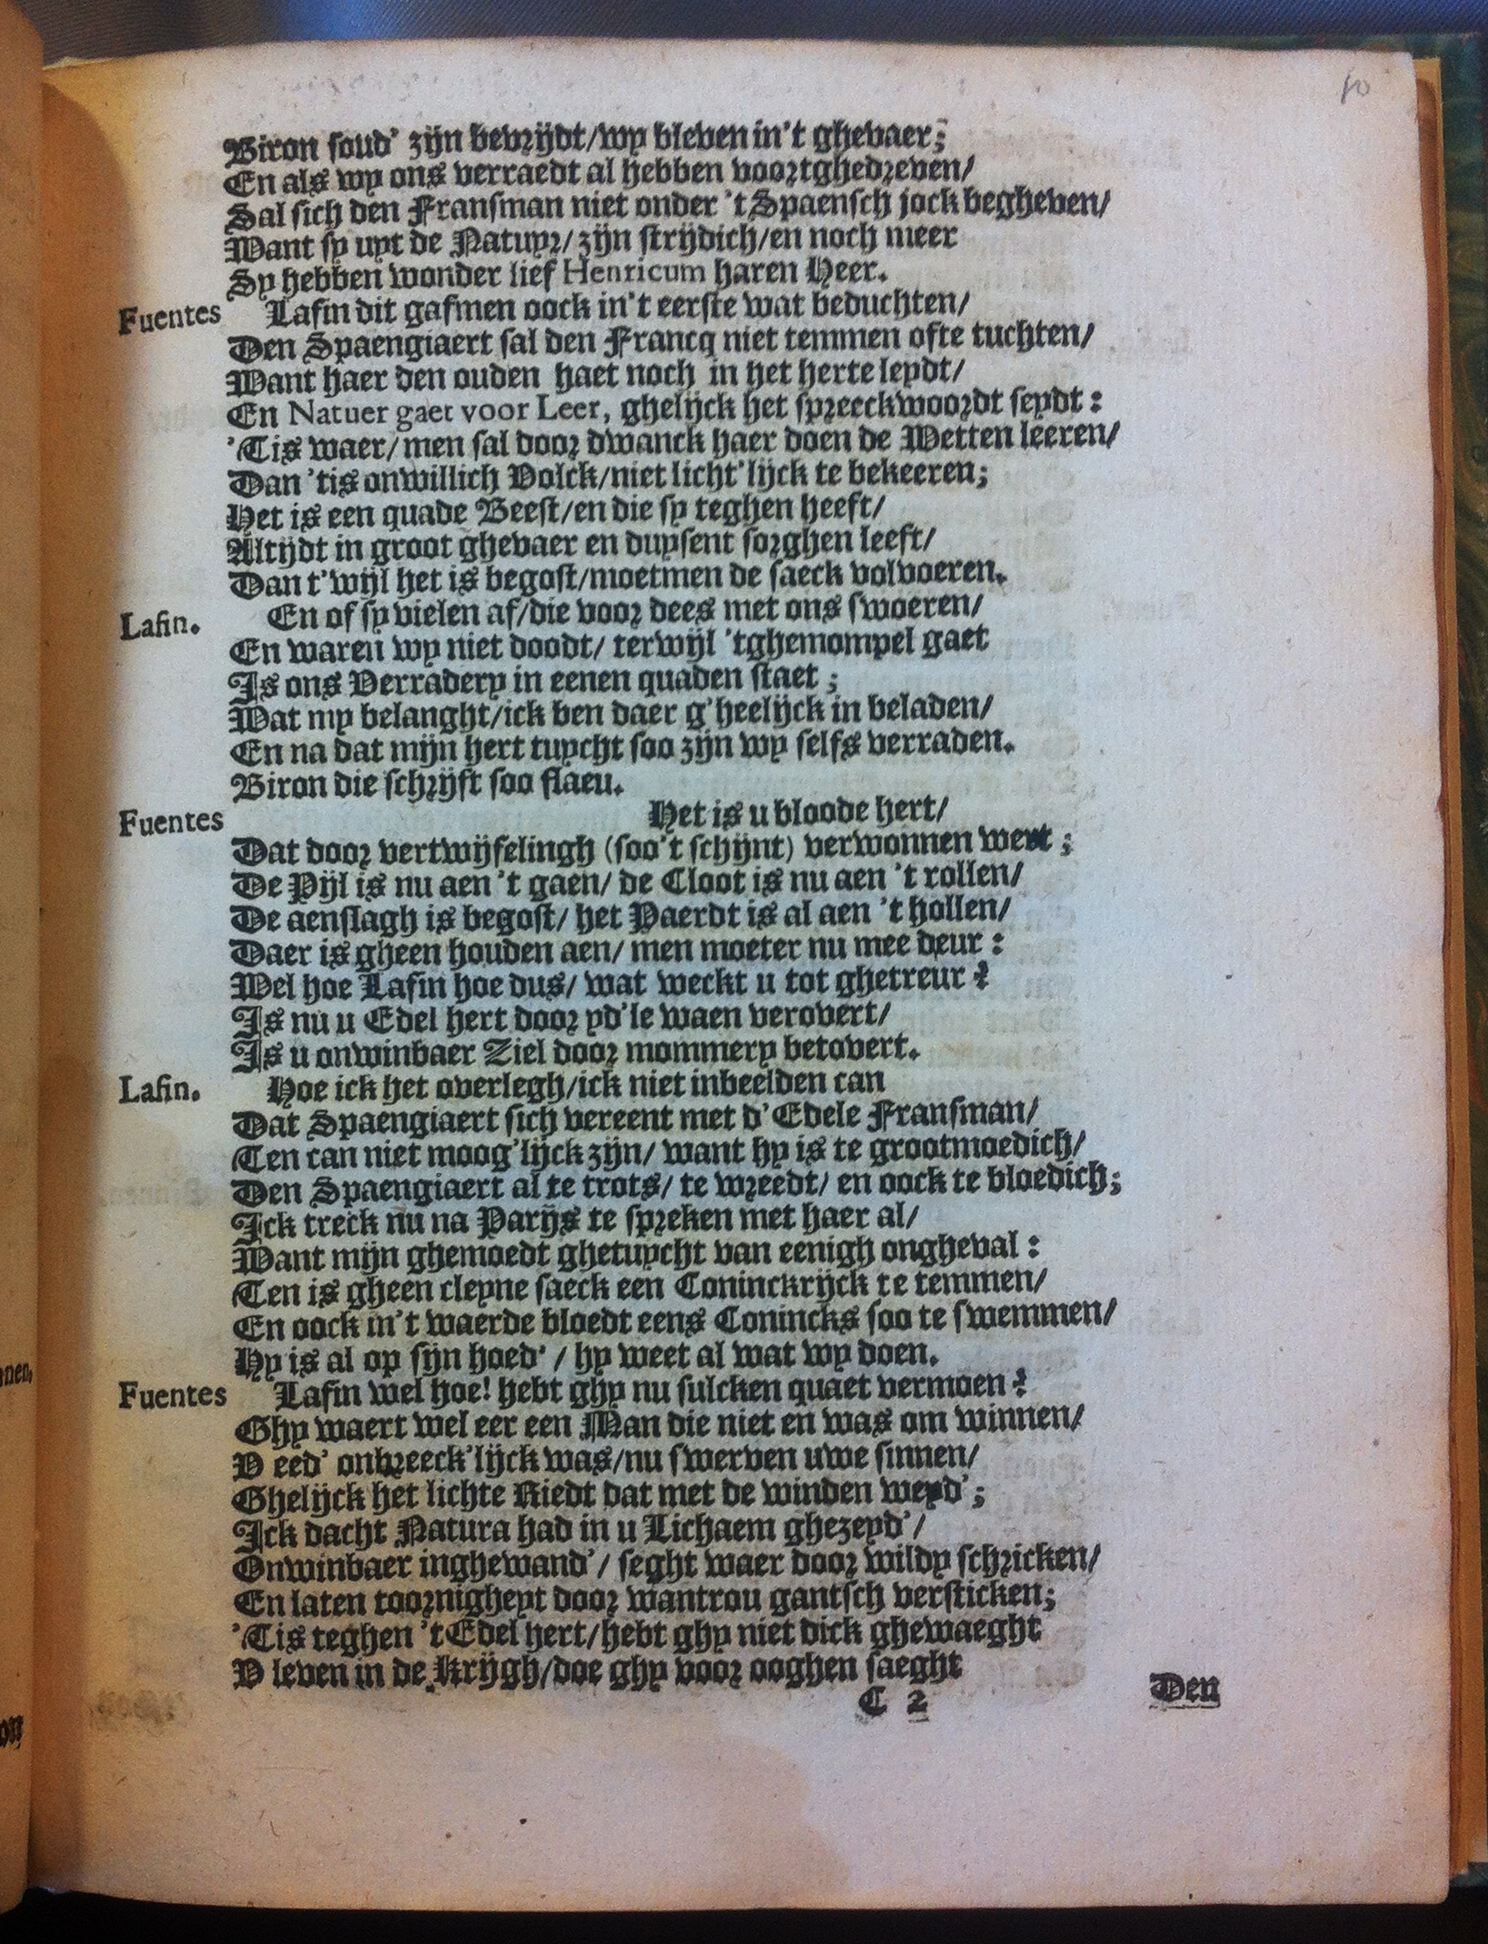 10
Biron soud' zijn bevrijdt/wy bleven in't ghevaer;
En als wy ons verraedt al hebben voortghedreven/
Sal sich den Fransman niet onder 't Spaensch jock begheven/
Want sy uyt de Natuyr/zijn strijdich/en noch meer
Sy hebben wonder lief Henricum haren Heer.
Fuentes Lafin dit gafmen oock in't eerste wat beduchten/
Den Spaengiaert sal den Francq niet temmen ofte tuchten/
Want haer den ouden haet noch in het herte leydt/
En Natuer gaet voor Leer, ghelijck het spreeckwoordt seydt:
'Tis waer/men sal door dwanck haer doen de Wetten leeren/
Dan 'tis onwillich Volck/niet licht'lijck te bekeeren;
Het is een quade Beest/en die sy teghen heeft/
Altijdt in groot ghevaer en duysent sorghen leeft/
Dan t'wijl het is begost/moetmen de saeck volvoeren.
Lafin. En of sy vielen af/die voor dees met ons swoeren/
En waren wy niet doodt/ terwijl 'tghemompel gaet
Is ons Verradery in eenen quaden staet;
Wat my belanght/ick ben daer g'heelijck in beladen/
En na dat mijn hert tuycht soo zijn wy selfs verraden.
Biron die schrijft soo flaeu.
Fuentes Het is u bloode hert/
Dat door vertwijfelingh (soo't schijnt) verwonnen wert;
De Pijl is nu aen 't gaen/ de Cloot is nu aen 't rollen/
De aenslagh is begost/ het Paerdt is al aen 't hollen/
Daer is gheen houden aen/ men moeter nu mee deur:
Wel hoe Lafin hoe dus/ wat weckt u tot ghetreur?
Is nu u Edel hert door yd'le waen verovert/
Is u onwinbaer Ziel door mommery betovert.
Lafin. Hoe ick het overlegh/ick niet inbeelden can
Dat Spaengiaert sich vereent met d'Edele Fransman/
Ten can niet moog'lijck zijn/ want hy is te grootmoedich/
Den Spaengiaert al te trots/ te wreedt/ en oock te bloedich;
Ick treck nu na Parijs te spreken met haer al/
Want mijn ghemoedt ghetuycht van eenigh ongheval:
Ten is gheen cleyne saeck een Coninckrijck te temmen/
En oock in't waerde bloedt eens Conincks soo te swemmen/
Hy is al op sijn hoed'/ hy weet al wat wy doen.
Fuentes Lafin wel hoe! hebt ghy nu sulcken quaet vermoen?
Ghy waert wel eer een Man die niet en was om winnen/
V eed' onbreeck'lijck was/nu swerven uwe sinnen/
Ghelijck het lichte Riedt dat met de winden weyd';
Ick dacht Natura had in u Lichaem ghezeyd'/
Onwinbaer inghewand'/ seght waer door wildy schricken/
En laten toornigheyt door wantrou gantsch versticken;
'Tis teghen 't Edel hert/hebt ghy niet dick ghewaeght
V leven in de Krijgh/doe ghy voor ooghen saeght
C 2 Den